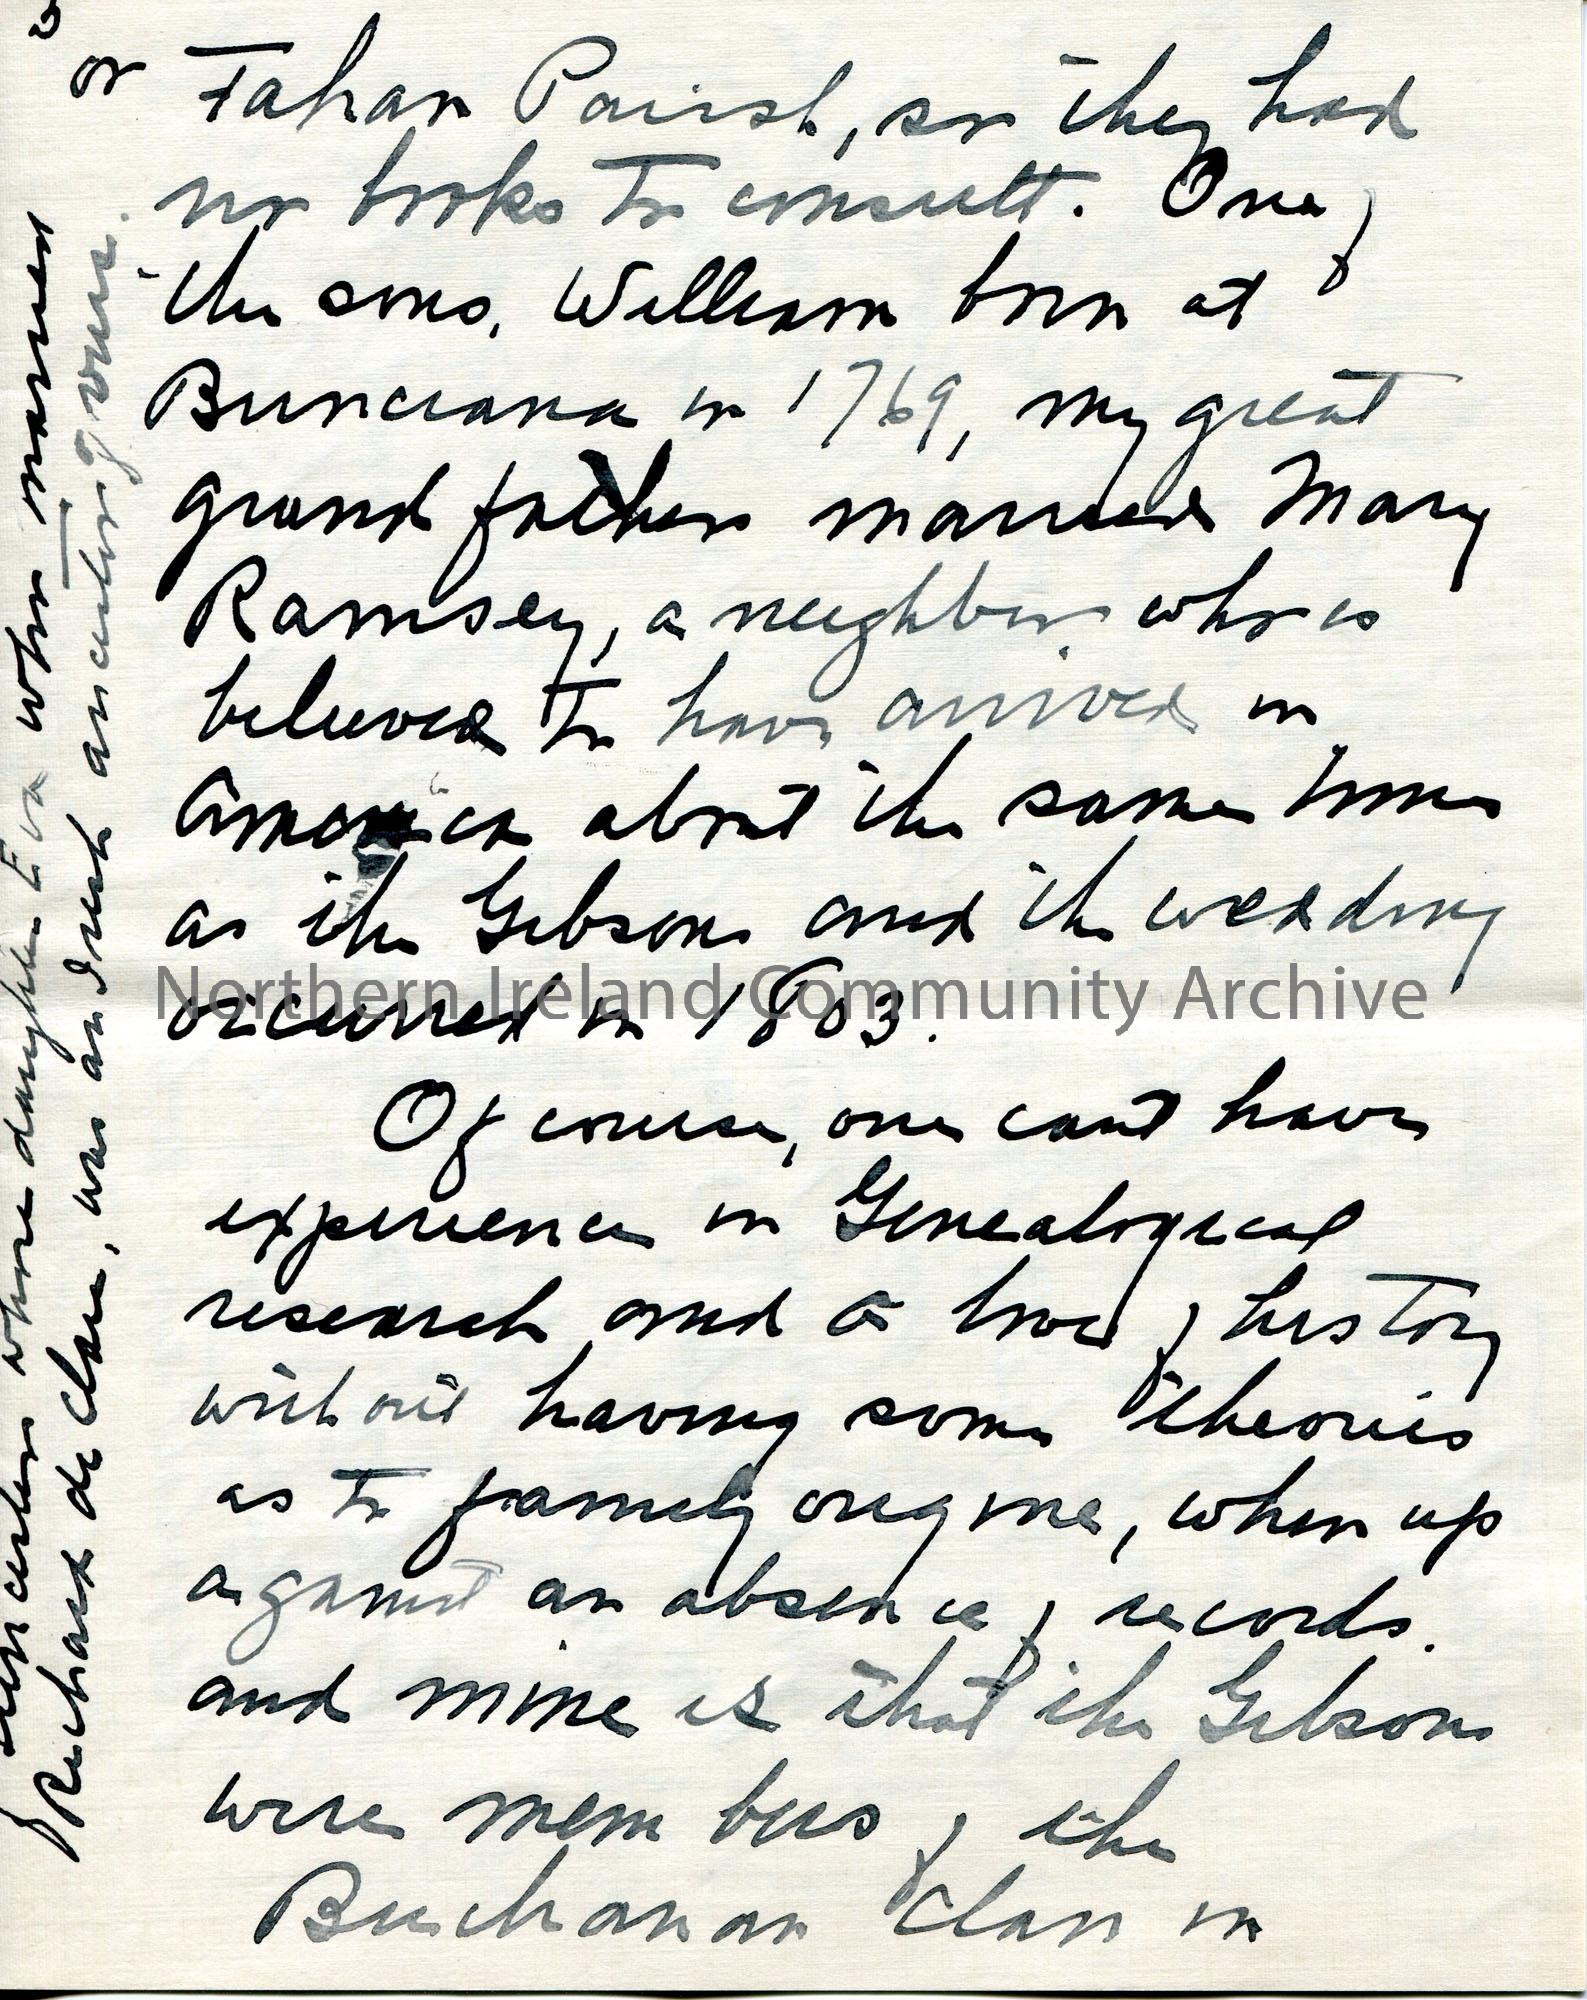 or
Fahan Parish, so they had
no books to consult. One of
the sons, William born at
Buncrana in 1769, my great
grand father married Mary
Ramsey, a neighbor who is
believed to have arrived in
America about the same time
as the Gibsons and the wedding
occurred in 1803.
Northern Ireland Community Archive
Of course, one cant have
experience in Genealogical
research and a love of history
without having some theories
as to family origins, when up
against an absence of records.
and mine is that the Gibsons
were members of the
Buchanan Clan in
ancestor whose daughter Eva who married
Richard de Clare, was an Irish ancestor of yours.